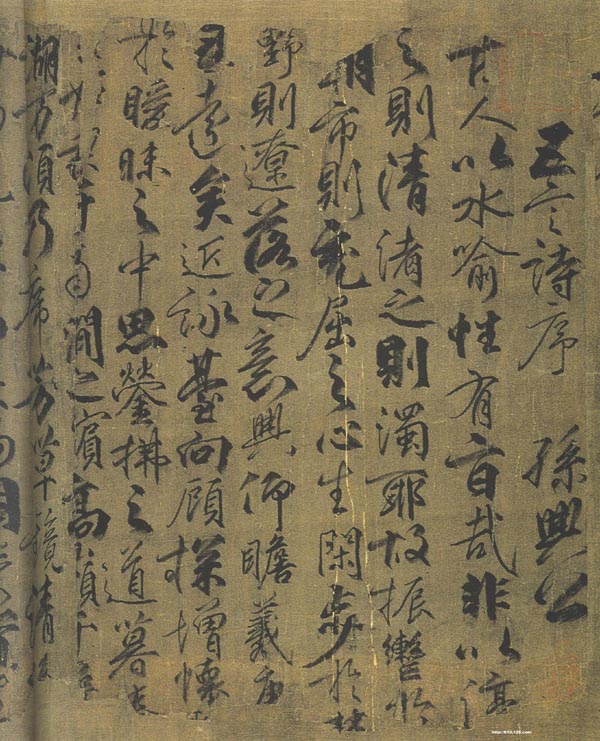 五言詩序 孫興公
古人以水喻性有旨哉非以渟
之則清渚之則濁耶故振轡於
朝市則充屈之心生閑步於林
野則遼落之意興仰瞻羲唐
遠矣近詠臺向顧探增懷
於曖昧之中思鎣拂之道暮春
于南澗之賓高嶺千尋
湖万頃乃席芳草鏡清流
http://613.126.com/